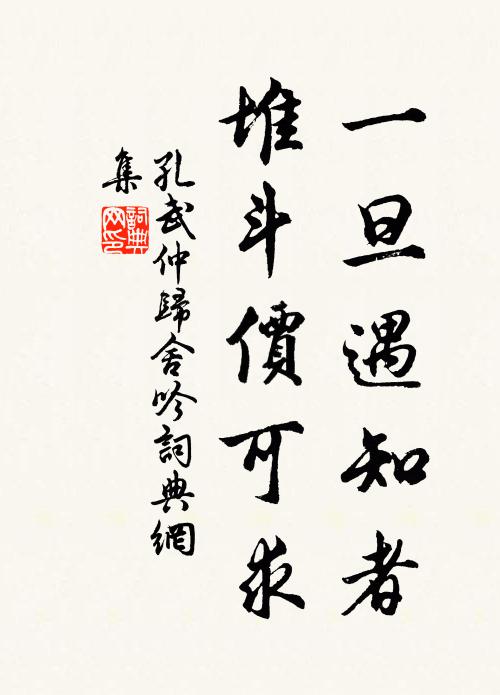 一旦遇知者
堆斗價可求
孔武仲歸舍吟詞典網
集
詞典網印